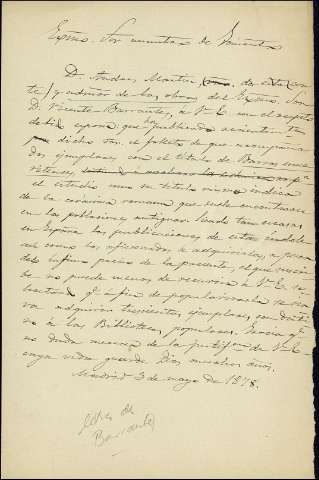 Exmo. Sor. ministro de Fomento
D. Andres Martin, de esta Cor
te y editor de las obras del Exmo. Sor.
D. Vicente Barrantes, a V. E. con el respeto
debido expone: que ha publicado
dicho Sor. el folleto de que acompaña
dos ejemplares con el título de Barros eme
ritenses,
el estudio como su título mismo indica
de la cerámica romana que suele encontrarse
en las poblaciones antiguas. Siendo tan escasas
en España las publicaciones de esta índole
como los aficionados a adquirirlas, a pesar
del ínfimo precio de la presente, el que suscri
be no puede menos de recurrir a V. E. su
plicando qe. a fin de popularizarla se sir
va adquirir trescientos ejemplares con desti
no a las Bibliotecas populares. Gracia qe.
no duda merecer de la justificon. de V. E.
cuya vida guarde Dios muchos años.
Madrid 3 de mayo de 1878.
letra de
Barrantes